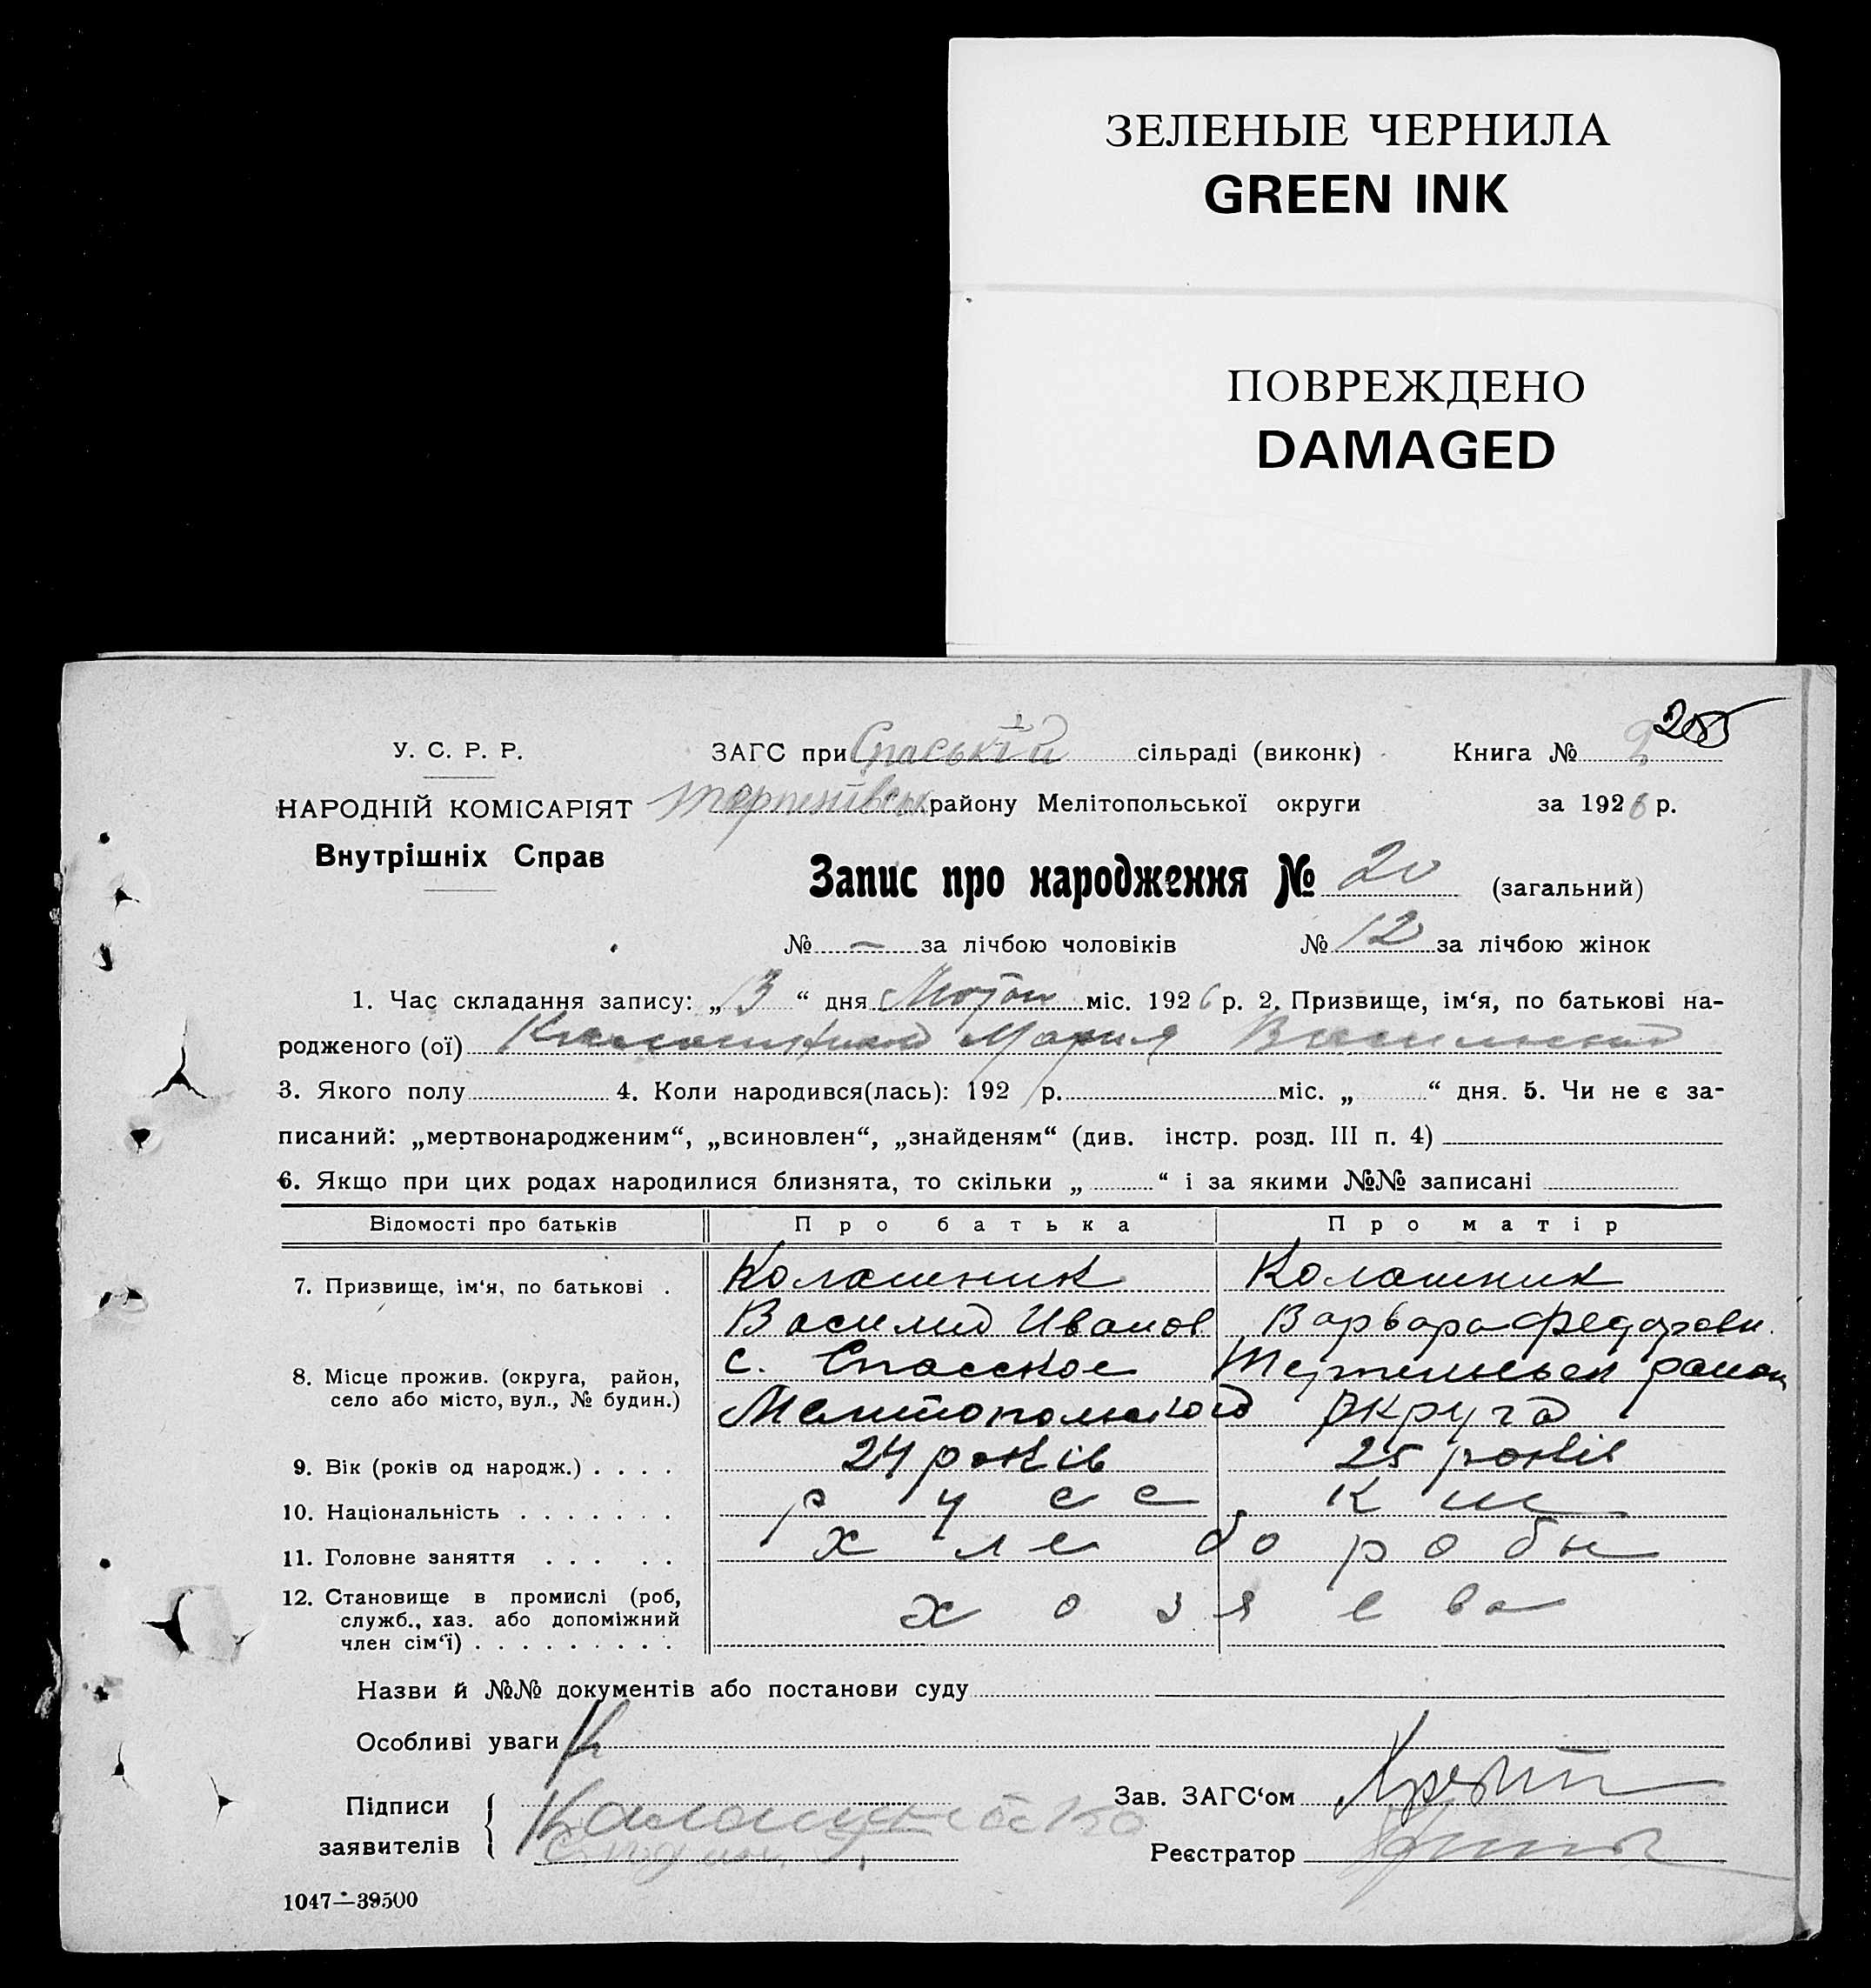 ЗЕЛЕНЫЕ ЧЕРНИЛА
GREEN INK
ПОВРЕЖДЕНО
DAMAGED
255
У. С. Р. Р. ЗАГС при Спаській сільраді (виконк) Книга № 2
НАРОДНІЙ КОМІСАРІЯТ району Мелітопольської округи за 1926 р.
Внутрішніх Справ
Запис про народження № 20 (загальний)
№ — за лічбою чоловіків № 12 за лічбою жінок
1. Час складання запису: „ 13 “ дня міс. 1926 р. 2. Призвище, ім‘я, по батькові на-
родженого (ої) Мария
3. Якого полу 4. Коли народився(лась): 192 р. міс. „ “ дня. 5. Чи не є за-
писаний: „мертвонародженим“, „всиновлен“, „знайденям“ (див. інстр. розд. III п. 4)
6. Якщо при цих родах народилися близнята, то скільки „ “ і за якими №№ записані
Відомості про батьків Про батька Про матір
7. Призвище, ім‘я, по батькові . Колашник Колашник
Василий Иванов Варвара Федоровн.
8. Місце прожив. (округа, район, с. Спасское район
село або місто, вул., № будин.) округа
9. Вік (років од народж.) . . . . 24 років 25 років
10. Національність . . . . . . . русс кии
11. Головне заняття . . . . . хлеборобы
12. Становище в промислі (роб, хозяева
служб., хаз. або допоміжний
член сім‘ї) . . . . . . . . .
Назви й №№ документів або постанови суду
Особливі уваги
Підписи Зав. ЗАГС‘ом
заявителів Реєстратор
1047—39500